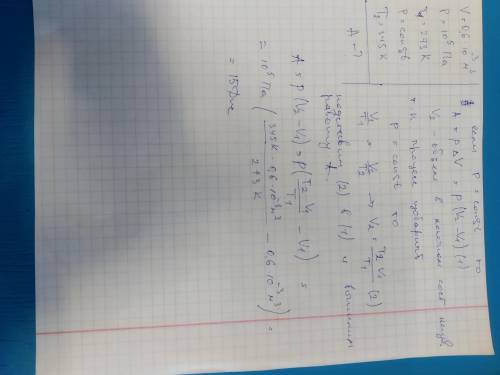 V = 0,6·10⁻³ м³
P = 10⁵ Па
T₁ = 273 K
P = const
T₂ = 345 K
A - ?
если P = const то
A = p ΔV = p (V₂ - V₁) (1)
V₂ - объем в конечном сост
т к процесс изобарный
p = const то
V₁/T₁ = V₂/T₂ → V₂ = T₂ V₁/T₁ (2)
подставим (2) в (1) и
работу A.
A = p (V₂ - V₁) = p (T₂ V₁/T₁ - V₁) =
= 10⁵ Па (345 K · 0,6·10⁻³ м³/273 K - 0,6·10⁻³ м³) =
= 15 Дж